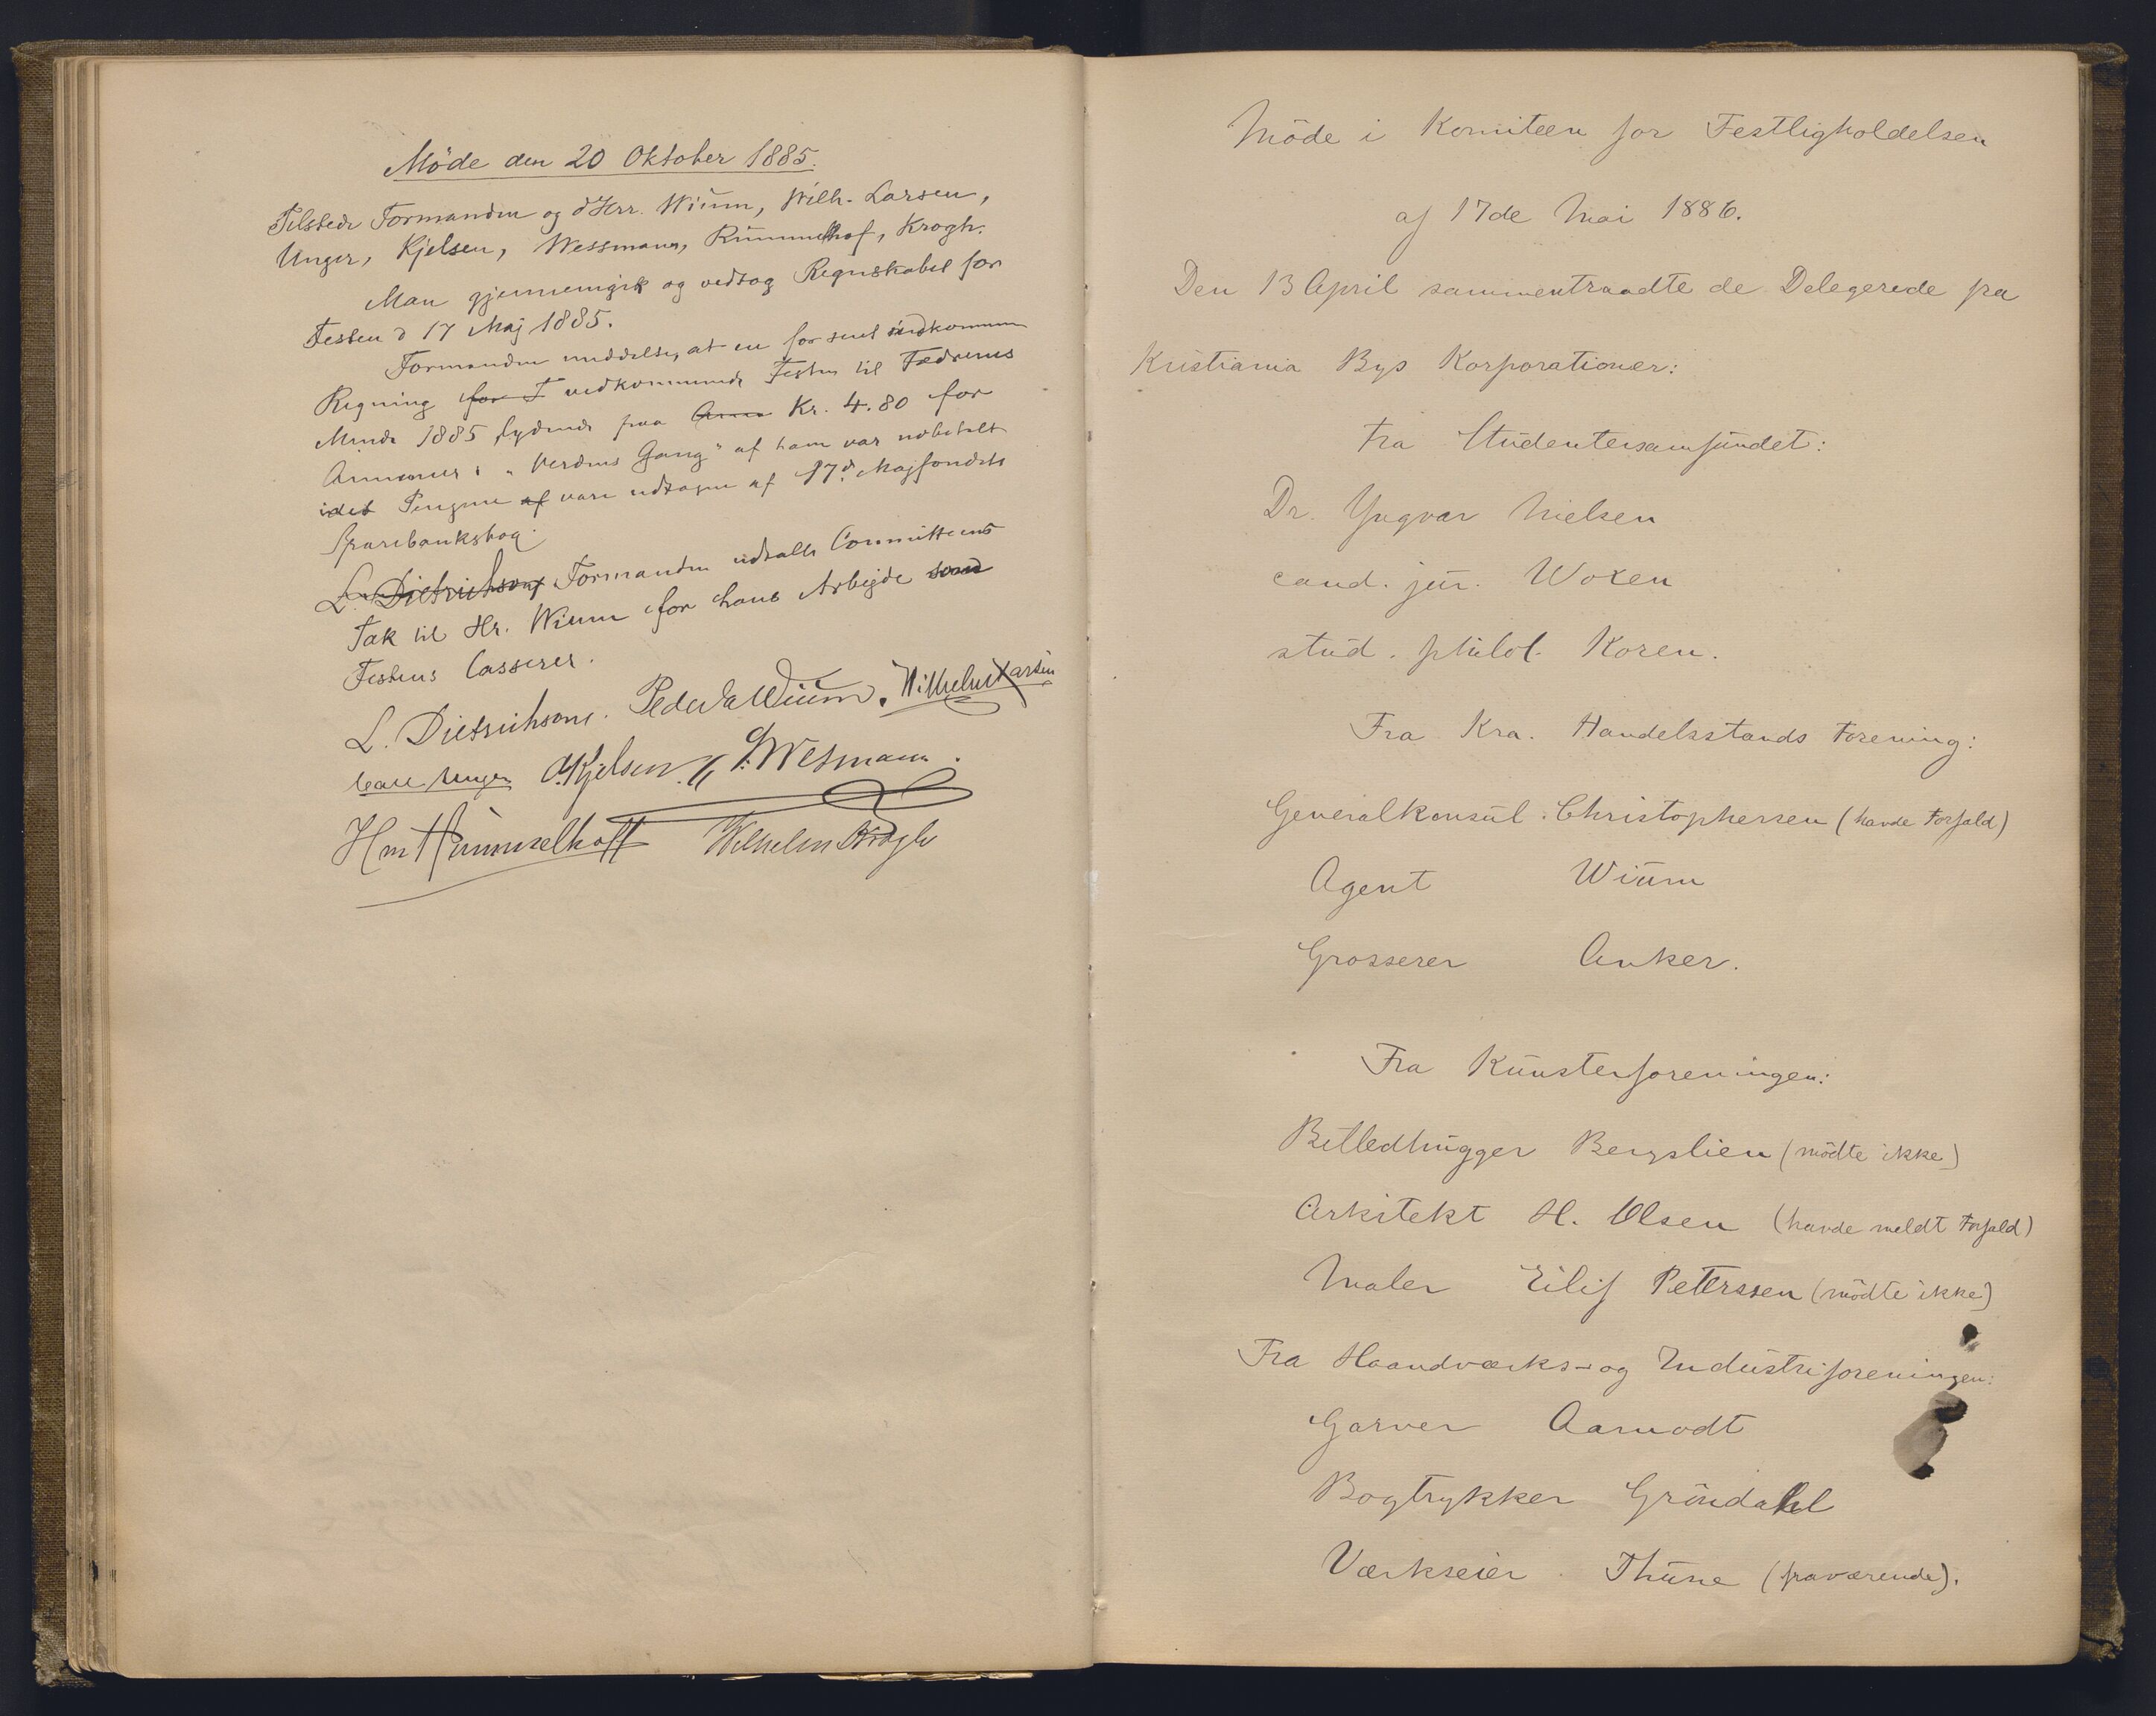 Möde den 20 Oktober 1885.
Tilstede Formanden og d'Hrr. Wiûm, Wilh. Larsen,
Unger, Kjelsen, Wessmann, Rümmelhof, Krogh.
Man gjennemgik og vedtog Regnskabet for
Festen d 17 Maj 1885.
Formanden meddelte, at en for sent indkommen
Regning for F vedkommende Festen til Fædrenes
Minde 1885 lydende paa Anno Kr. 4.80 for
Annoncer i "Verdens Gang" af ham var udbetalt
idet Pengene af vare udtagne af 17d. Majfondets
Sparebanksbog.
L. Dietrichson Formanden udtalte Committeens
Tak til Hr. Wiûm for hans Arbejde som
Festens Casserer.
L. Dietrichson. Peder Wiûm. Wilhelm Larsen
Carl Unger O. Kjelsen. Wesmann.
Hm Hümmelhoff Wilhelm Krogh
Möde i Komiteen for Festligholdelsen
af 17de Mai 1886.
Den 13 April sammentraadte de Delegerede fra
Kristiania Bys Korporationer:
Fra Stûdentersamfûndet:
Dr. Yngvar Nielsen
cand. jûr. Woxen
stûd. philol. Koren.
Fra Kra. Handelsstands Forening:
Generalkonsûl Christophersen (havde Forfald)
Agent Wiûm
Grosserer Anker.
Fra Kûnsterforeningen:
Billedhûgger Bergslien (mödte ikke)
Arkitekt H. Olsen (havde meldt Forfald)
Maler Eilif Peterssen (mödte ikke)
Fra Haandværks- og Indûstriforeningen:
Garver Aamodt
Bogtrykker Gröndahl
Værkseier Thûne (fraværende).